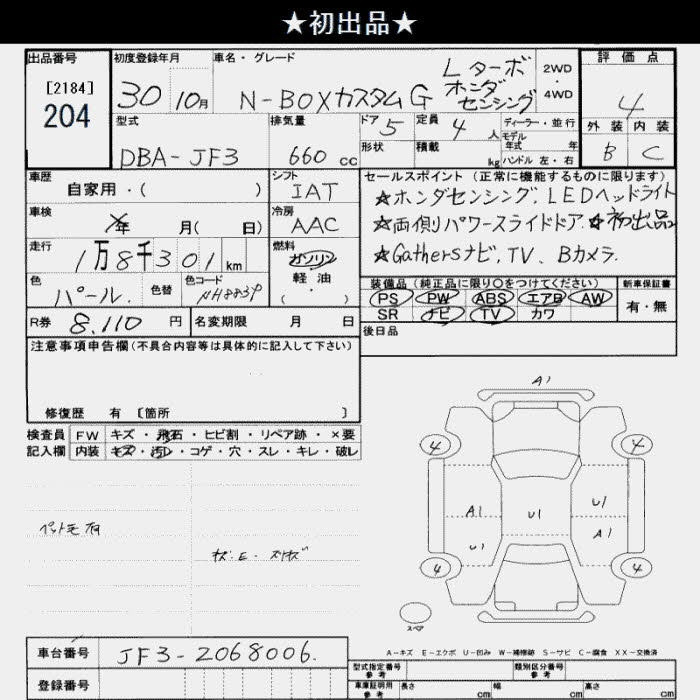 ★初出品★
出品番号 初度登録年月 車名・グレード 評価点
[2184]
204
30 10月 N-BOXカスタムG Lターボ ホンダ センシング 2WD・4WD 4
型式 排気量 ドア 定員 ディーラー・並行 外装 内装
DBA-JF3 660cc 5 4人 モデル年式 年 B C
形状 積載 kg ハンドル 左・右
車歴 自家用・( ) シフト IAT セールスポイント(正常に機能するものに限ります)
★ホンダセンシング、LEDヘッドライト
車検 年 月( 日) 冷房 AAC
★両側パワースライドドア ★初出品
走行 1万8千301km 燃料 ガソリン 軽油 ( ・ )
★Gathersナビ、TV、Bカメラ.
色 パール. 色替 色コード NH883P
装備品(純正品に限り○をつけてください) 新車保証書
PS PW ABS エアB AW 有・無
SR ナビ TV カワ
R券 8,110円 名変期限 月 日
後日品
注意事項申告欄(不具合内容等は具体的に記入して下さい)
修復歴 有 [箇所 ]
検査員 FW キズ・飛石・ヒビ割・リペア跡・×要
記入欄 内装 キズ・汚レ・コゲ・穴・スレ・キレ・破レ
A1
4 4
A1 U1 U1
U1 A1
4 4
ペット毛有
スペア
A-キズ E-エクボ U-凹み W-補修跡 S-サビ C-腐食 XX-交換済
車台番号 JF3-2068006.
登録番号
型式指定番号 参考 類別区分番号 参考
車庫証明用 参考 長さ cm 幅 cm 高さ cm